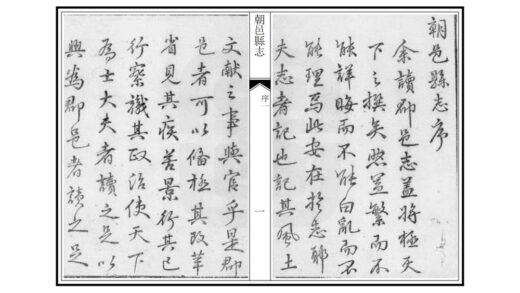 朝邑縣志序
余讀郡邑志蓋將極天
下之撰矣然蓋繁而不
能詳晦而不能白亂而不
能理焉此安在於志耶
夫志者記也記其風土
朝邑縣志
序
一
文献之事與官乎是郡
邑者可以備極其改革
省見其疾苦景行其已
行察識其政治使天下
為士大夫者讀之足以
興為郡邑者讀之足